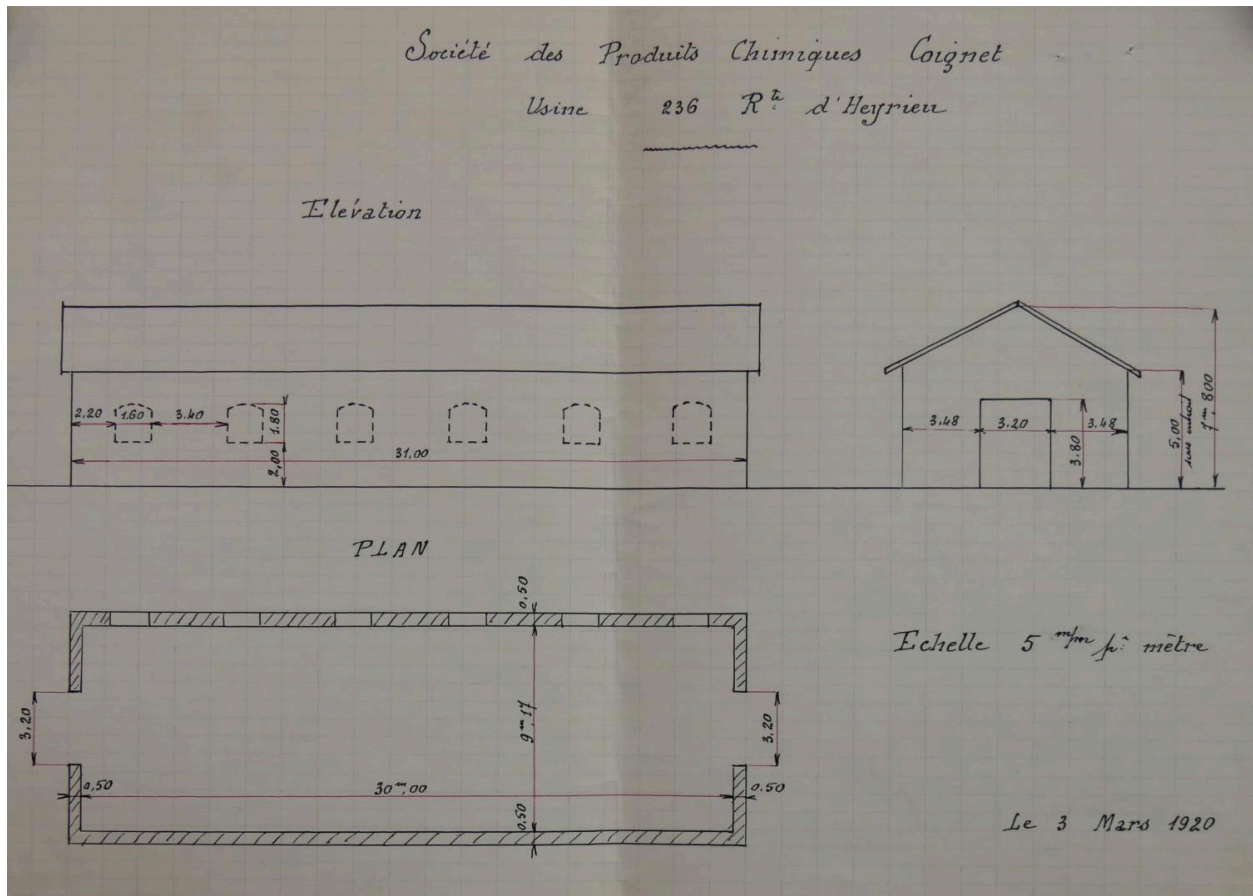 Société des Produits Chimiques Coignet
Usine 236 Rte d'Heyrieu
Elévation
2,20 1.60 3.40
1.80
2,00
31,00
3.48 3.20 3.48
3.80
5,00
7m,800
PLAN
0,50
3,20
9m17
3,20
0,50
30m,00
0.50
0,50
Echelle 5 m/m pr mètre
Le 3 Mars 1920